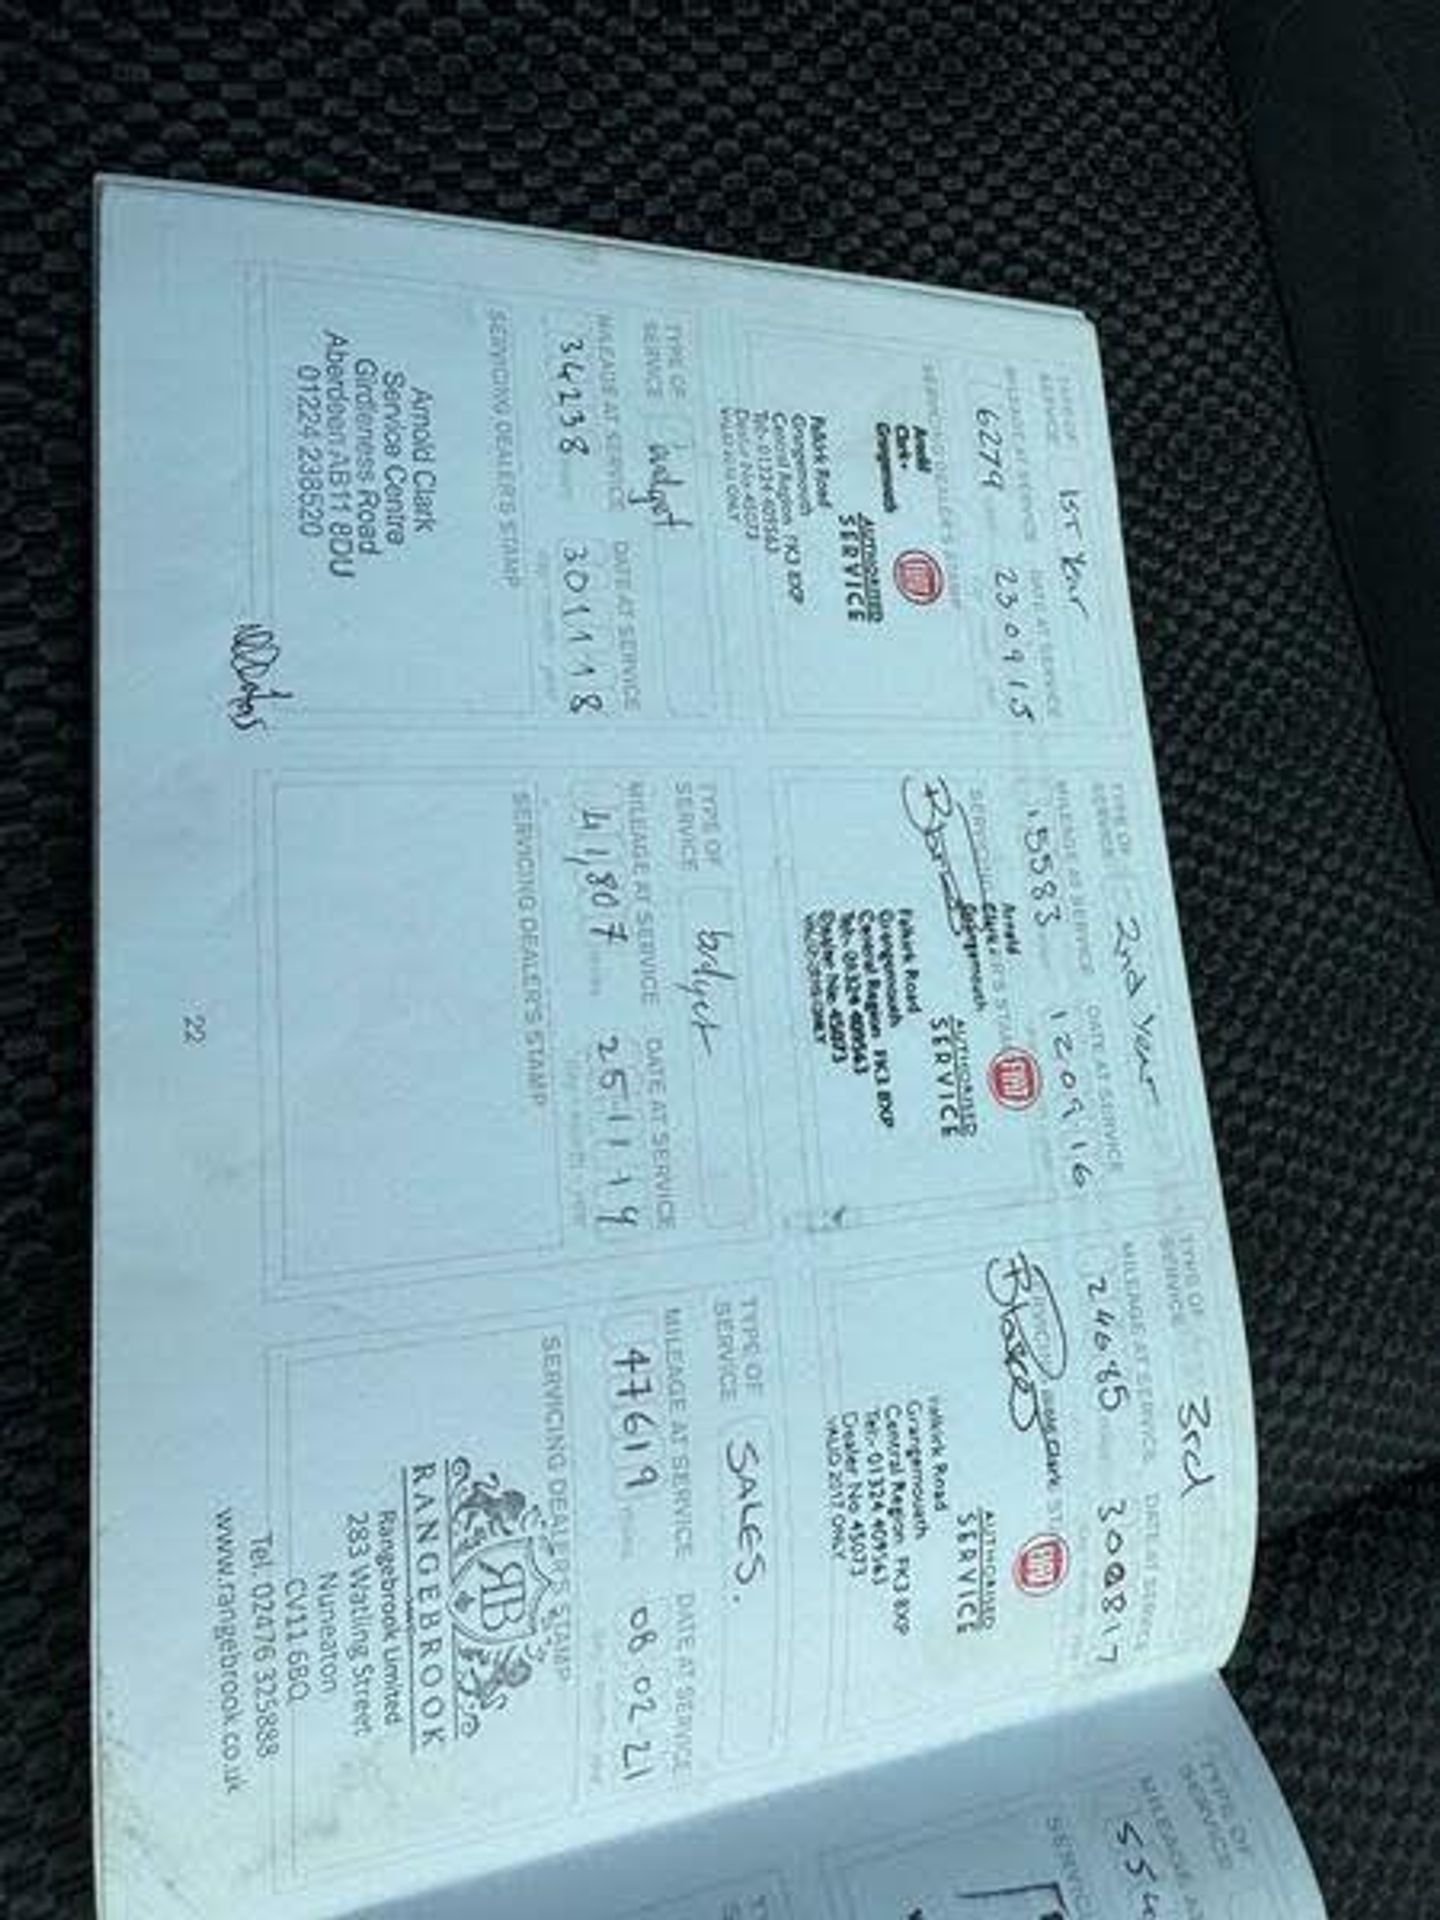 TYPE OF
SERVICE
1ST Year
MILEAGE AT SERVICE
DATE AT SERVICE
6279
230915
SERVICING DEALER'S STAMP
Arnold
Clark
Grangemouth
FIAT
AUTHORIZED
SERVICE
Falkirk Road
Grangemouth
Central Region FK3 8XP
Tel:- 01324 409563
Dealer No 45073
TYPE OF
SERVICE
2nd Year
MILEAGE AT SERVICE
DATE AT SERVICE
15583
120916
SERVICING DEALER'S STAMP
Arnold
Clark
Grangemouth
FIAT
AUTHORIZED
SERVICE
Falkirk Road
Grangemouth
Central Region FK3 8XP
Tel:- 01324 409563
Dealer No. 45073
VALID 2016 ONLY
TYPE OF
SERVICE
3rd
MILEAGE AT SERVICE
DATE AT SERVICE
24685
300817
FIAT
AUTHORIZED
SERVICE
Falkirk Road
Grangemouth
Central Region FK3 8XP
Tel:- 01324 409563
Dealer No 45073
VALID 2017 ONLY
TYPE OF
SERVICE
budget
MILEAGE AT SERVICE
DATE AT SERVICE
34238
301118
SERVICING DEALER'S STAMP
Arnold Clark
Service Centre
Girdleness Road
Aberdeen AB11 8DU
01224 238520
TYPE OF
SERVICE
budget
MILEAGE AT SERVICE
DATE AT SERVICE
41,807
251119
SERVICING DEALER'S STAMP
TYPE OF
SERVICE
SALES.
MILEAGE AT SERVICE
DATE AT SERVICE
47619
08 02 21
SERVICING DEALER'S STAMP
RB
RANGEBROOK
Rangebrook Limited
283 Watling Street
Nuneaton
CV11 6BQ
Tel. 02476 325888
www.rangebrook.co.uk
22
TYPE OF
SERVICE